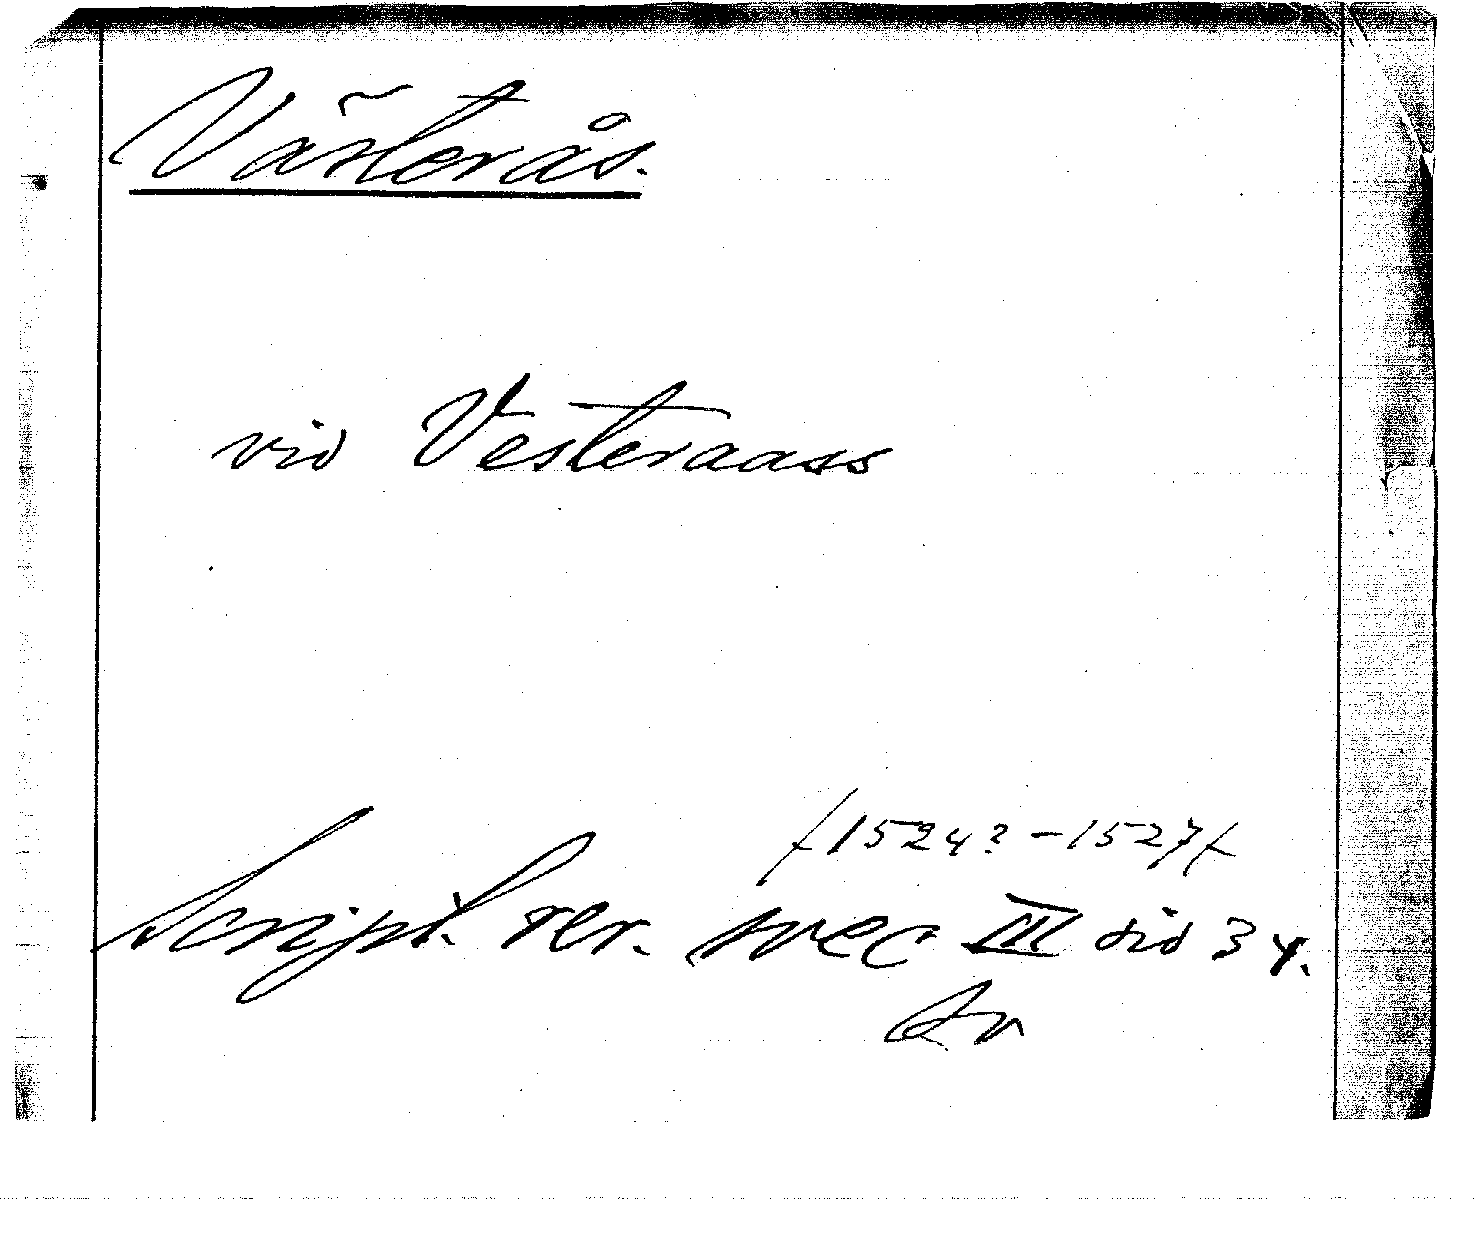 Västerås.
vid Vesteraass
/1524?-1527/
Script. rer. svec III sid 34.